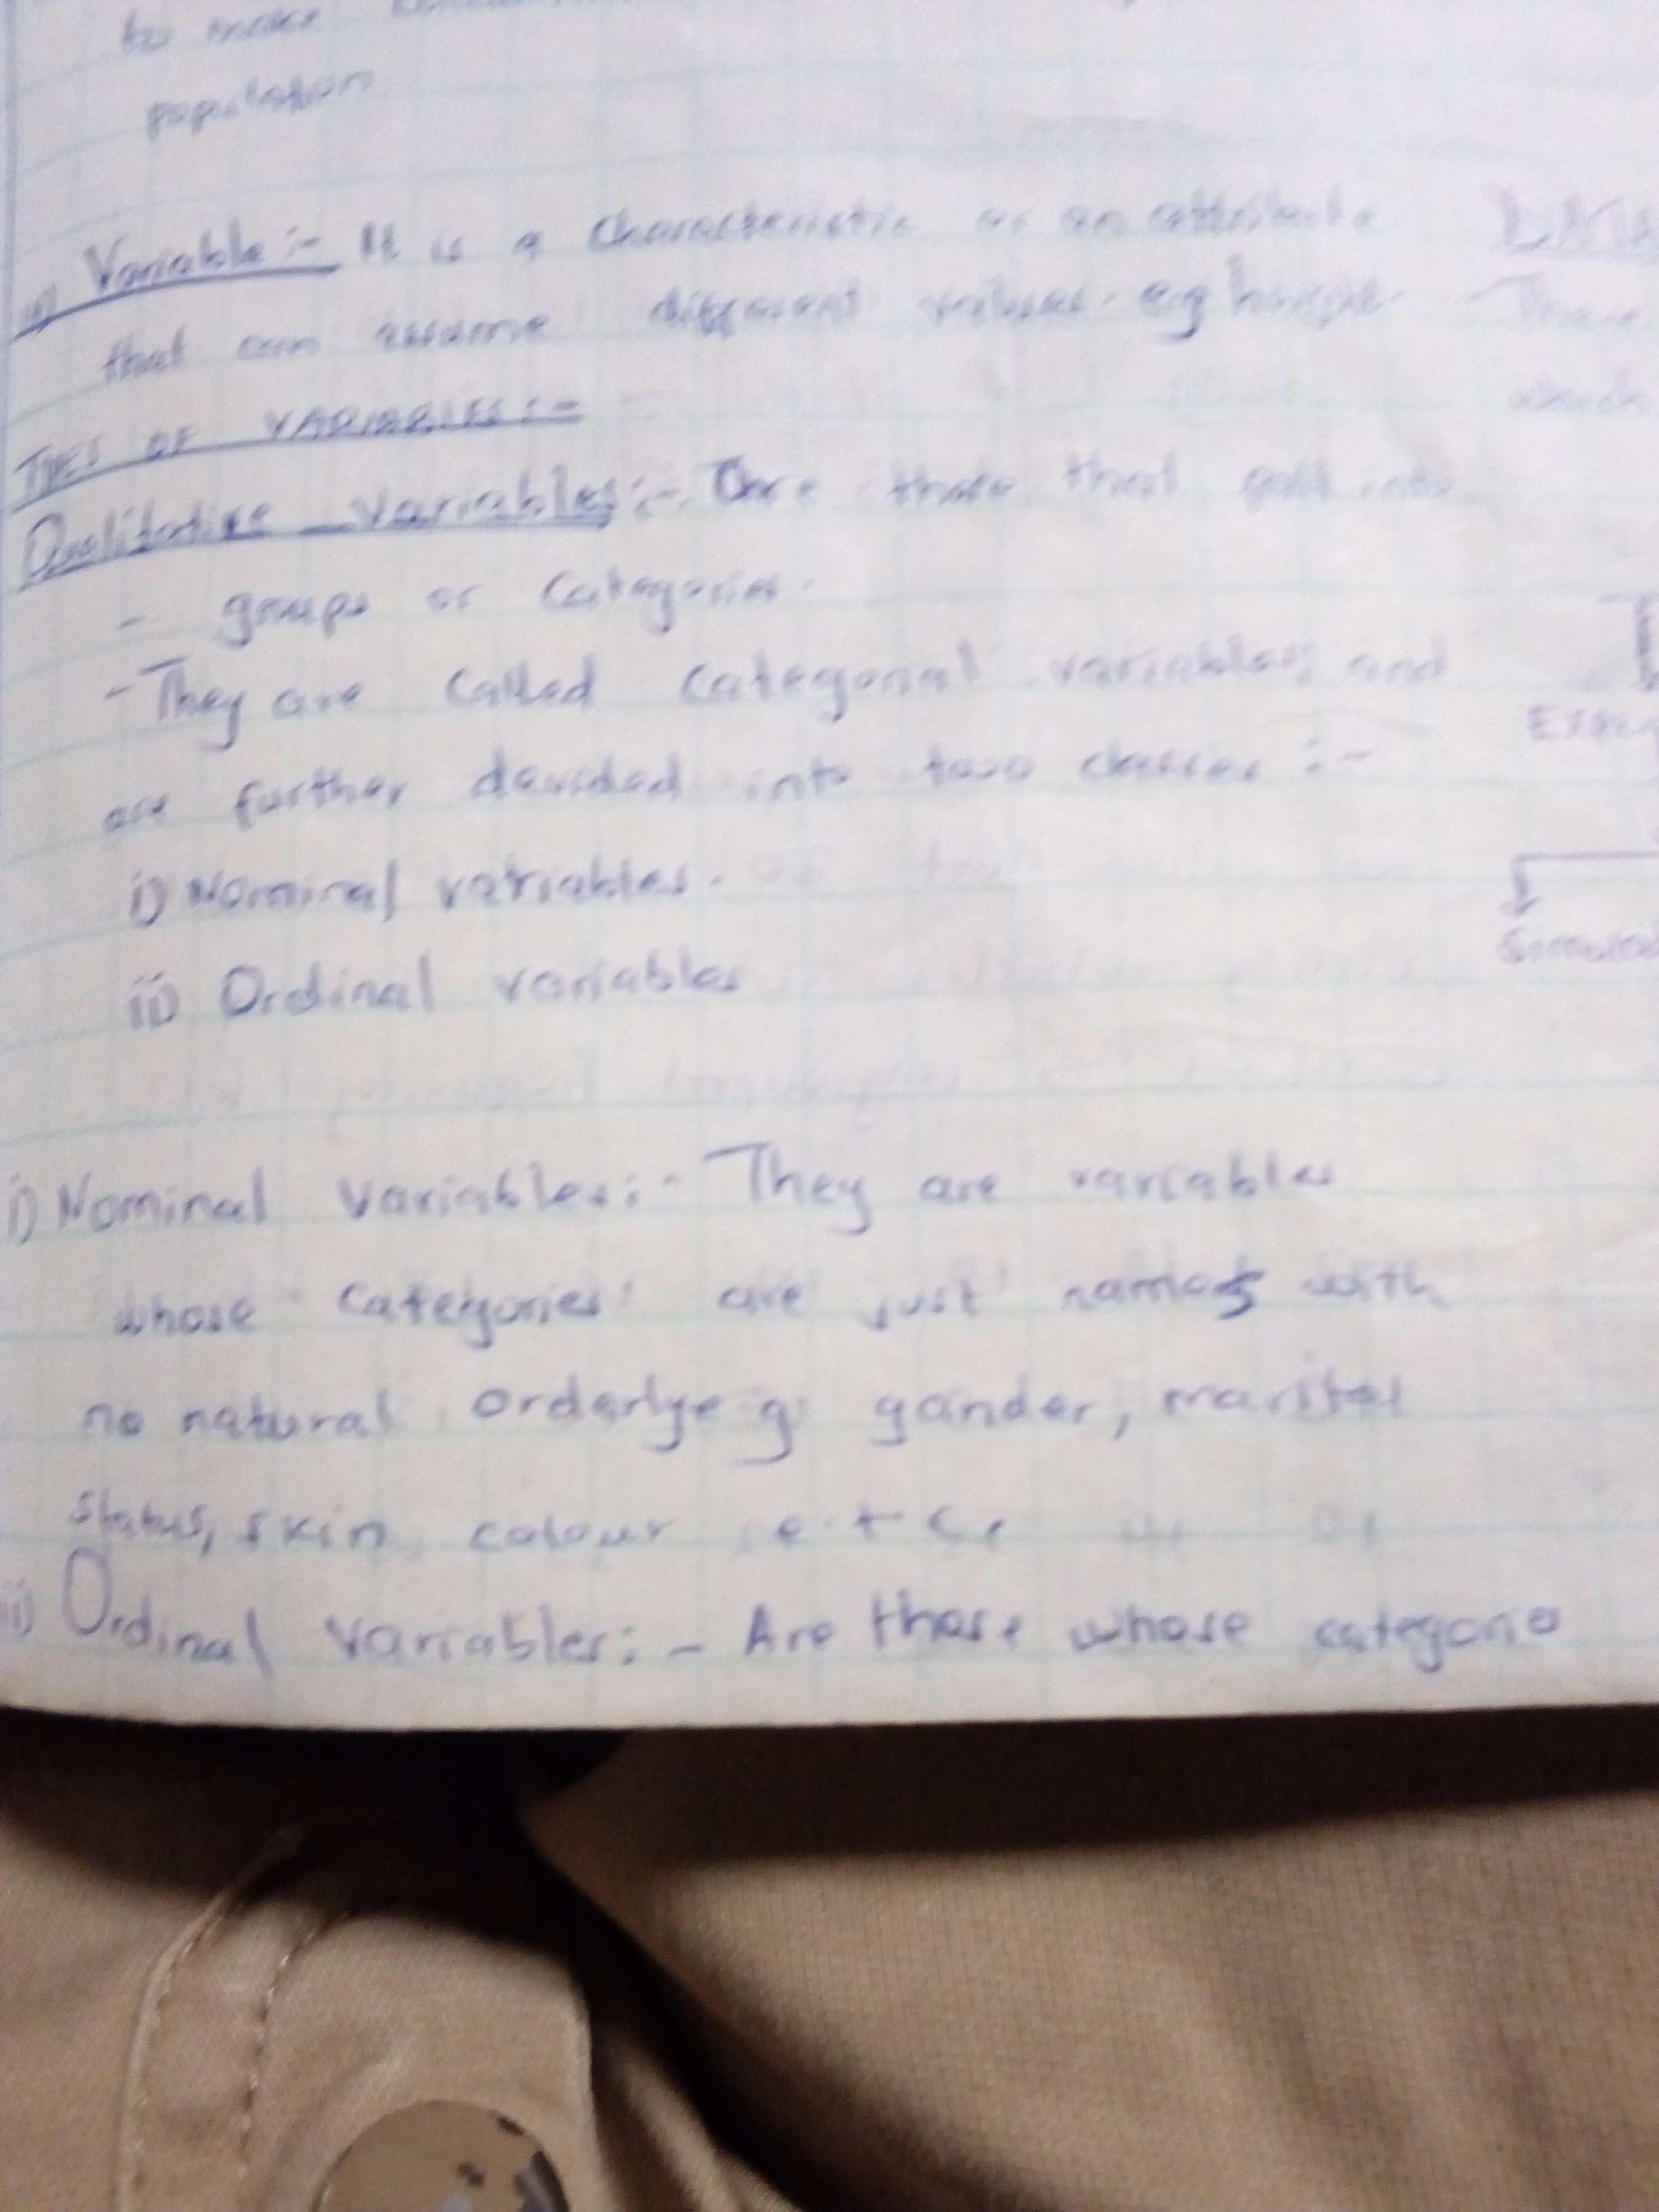 to make
population
Variable:- It is a characteristic or an attribute
that can assume different values. eg height.
TYPES OF VARIABLES:-
Qualitative variables:- Are those that fall into
- groups or categories.
- They are called categorial variables, and
are further devided into two classes:-
i) Nominal variables.
ii) Ordinal variables
i) Nominal variables:- They are variables
whose categories are just names with
no natural orderly e.g. gander, marital
status, skin colour e.t.c,
ii) Ordinal variables:- Are those whose categorie
There
which